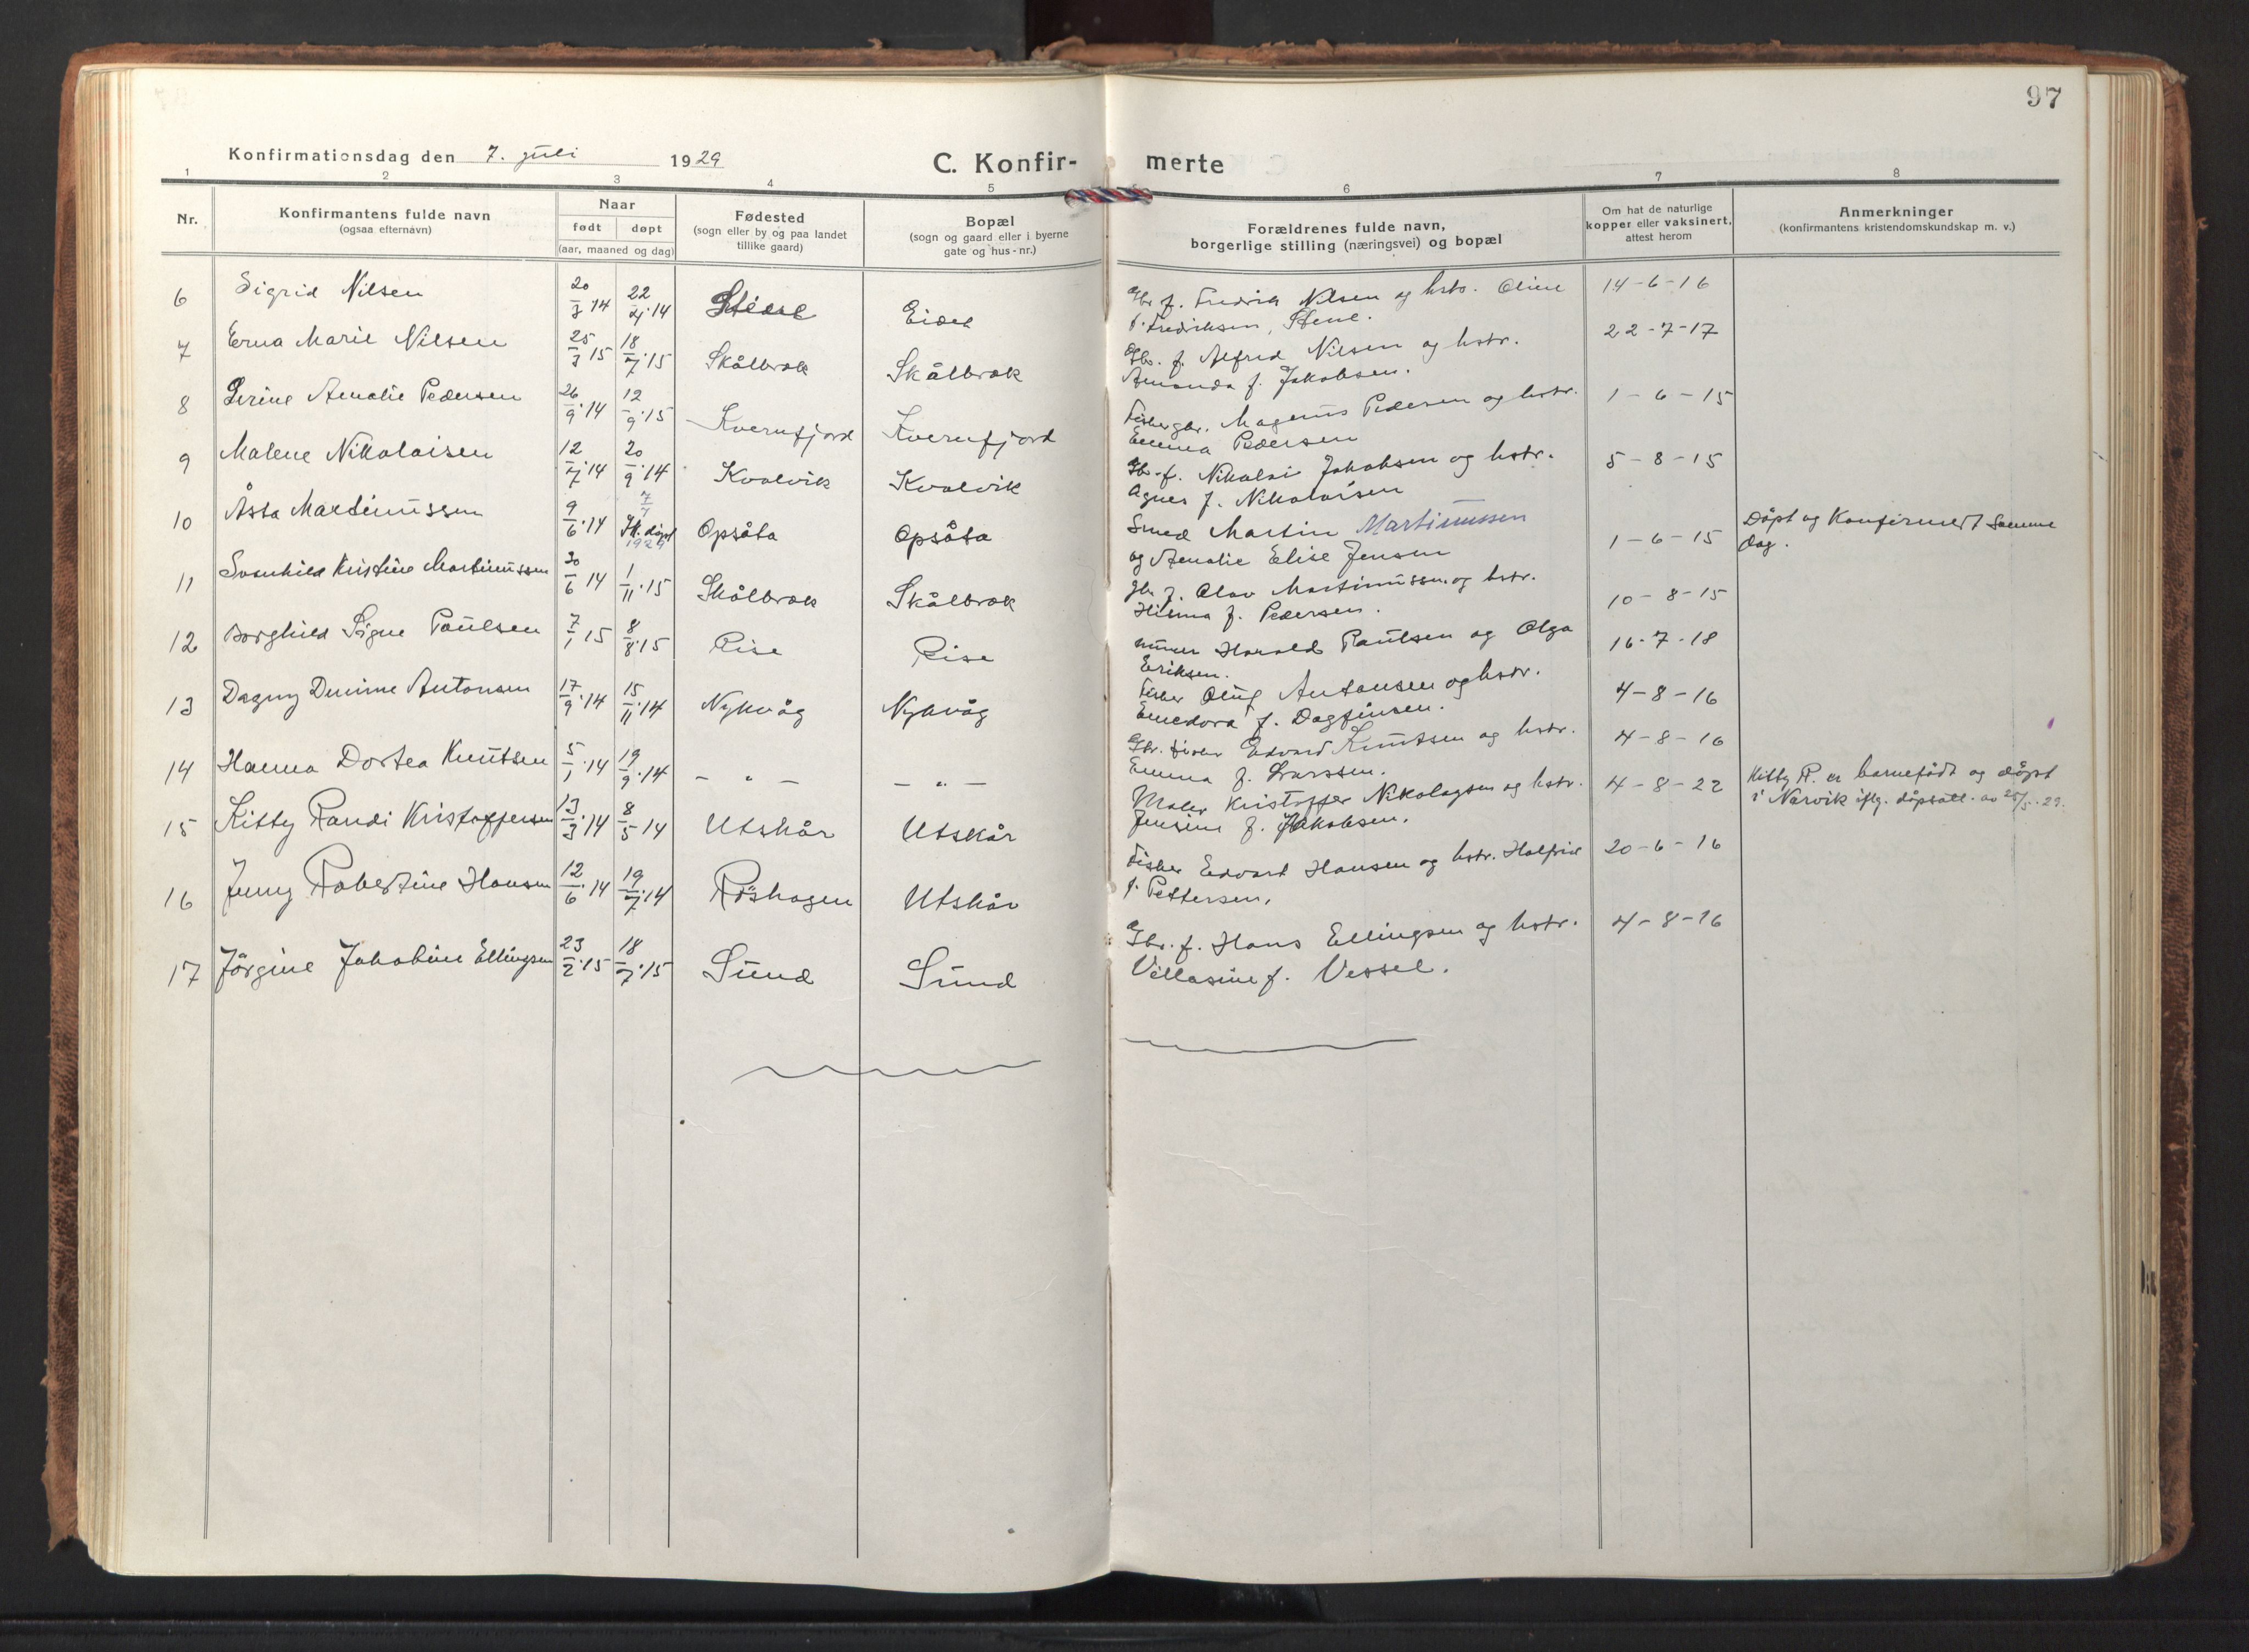 97
Konfirmationsdag den 7. juli 1929
C. Konfir- merte
1 2 3 4 5 6 7 8
Nr.
Konfirmantens fulde navn
(ogsaa efternavn)
Naar
født døpt
(aar, maaned og dag)
Fødested
(sogn eller by og paa landet
tillike gaard)
Bopæl
(sogn og gaard eller i byerne
gate og hus-nr.)
Forældrenes fulde navn,
borgerlige stilling (næringsvei) og bopæl
Om hat de naturlige
kopper eller vaksinert,
attest herom
Anmerkninger
(konfirmantens kristendomskundskap m. v.)
6 Sigrid Nilsen 20/3 14 22/4 14 Eidet
Gbr. f. Fredrik Nilsen og hstr. Oline
f. Fredriksen, Stene.
14-6-16
7 Erna Marie Nilsen 25/3 15 18/7 15 Skålbrok Skålbrok
Gbr. f. Alfred Nilsen og hstr.
Amanda f. Jakobsen.
22-7-17
8 Serine Amalie Pedersen 26/9 14 12/9 15 Kvernfjord Kvernfjord
Fisker gbr. Magnus Pedersen og hstr.
Emma Pedersen
1-6-15
9 Malene Nikolaisen 12/7 14 20/9 14 Kvalvik Kvalvik
Gbr. f. Nikolai Jakobsen og hstr.
Agnes f. Nikolaisen
5-8-15
10 Åsta Martinussen 9/6 14 7/7 1929 Opsåta Opsåta
Smed Martin Martinussen
og Amalie Elise Jensen
1-6-15
Døpt og Konfirmert samme
dag.
11 Svanhild Kristine Martinussen 30/6 14 1/11 15 Skålbrok Skålbrok
Gbr. f. Olav Martinussen og hstr.
Hilma f. Pedersen.
10-8-15
12 Borghild Signe Paulsen 7/1 15 8/8 15 Rise Rise
Harald Paulsen og Olga
Eriksen.
16-7-18
13 Dagny Antonsen 17/9 14 15/11 14 Nykvåg Nykvåg
Fisker Oluf Antonsen og hstr.
f. Dagfinsen.
4-8-16
14 Hanna Dortea Knutsen 5/1 14 19/9 14 - " - - " -
Gbr. fisker Edvard Knutsen og hstr.
Emma f. Larssen.
4-8-16
15 Kitty Randi Kristoffersen 13/3 14 8/5 14 Utskår Utskår
Maler Kristoffer Nikolaysen og hstr.
Jensine f. Jakobsen.
4-8-22
Kitty R. er barnefødt og døpt
i Narvik iflg. døpsatt. av 25/5. 29.
16 Jenny Robertine Hansen 12/6 14 19/7 14 Røshagen Utskår
Fisker Edvart Hansen og hstr. Halfrid
f. Pettersen.
20-6-16
17 Jørgine Jakobine Ellingsen 23/2 15 18/7 15 Sund Sund
Gbr. f. Hans Ellingsen og hstr.
Villasine f. Vessel.
4-8-16